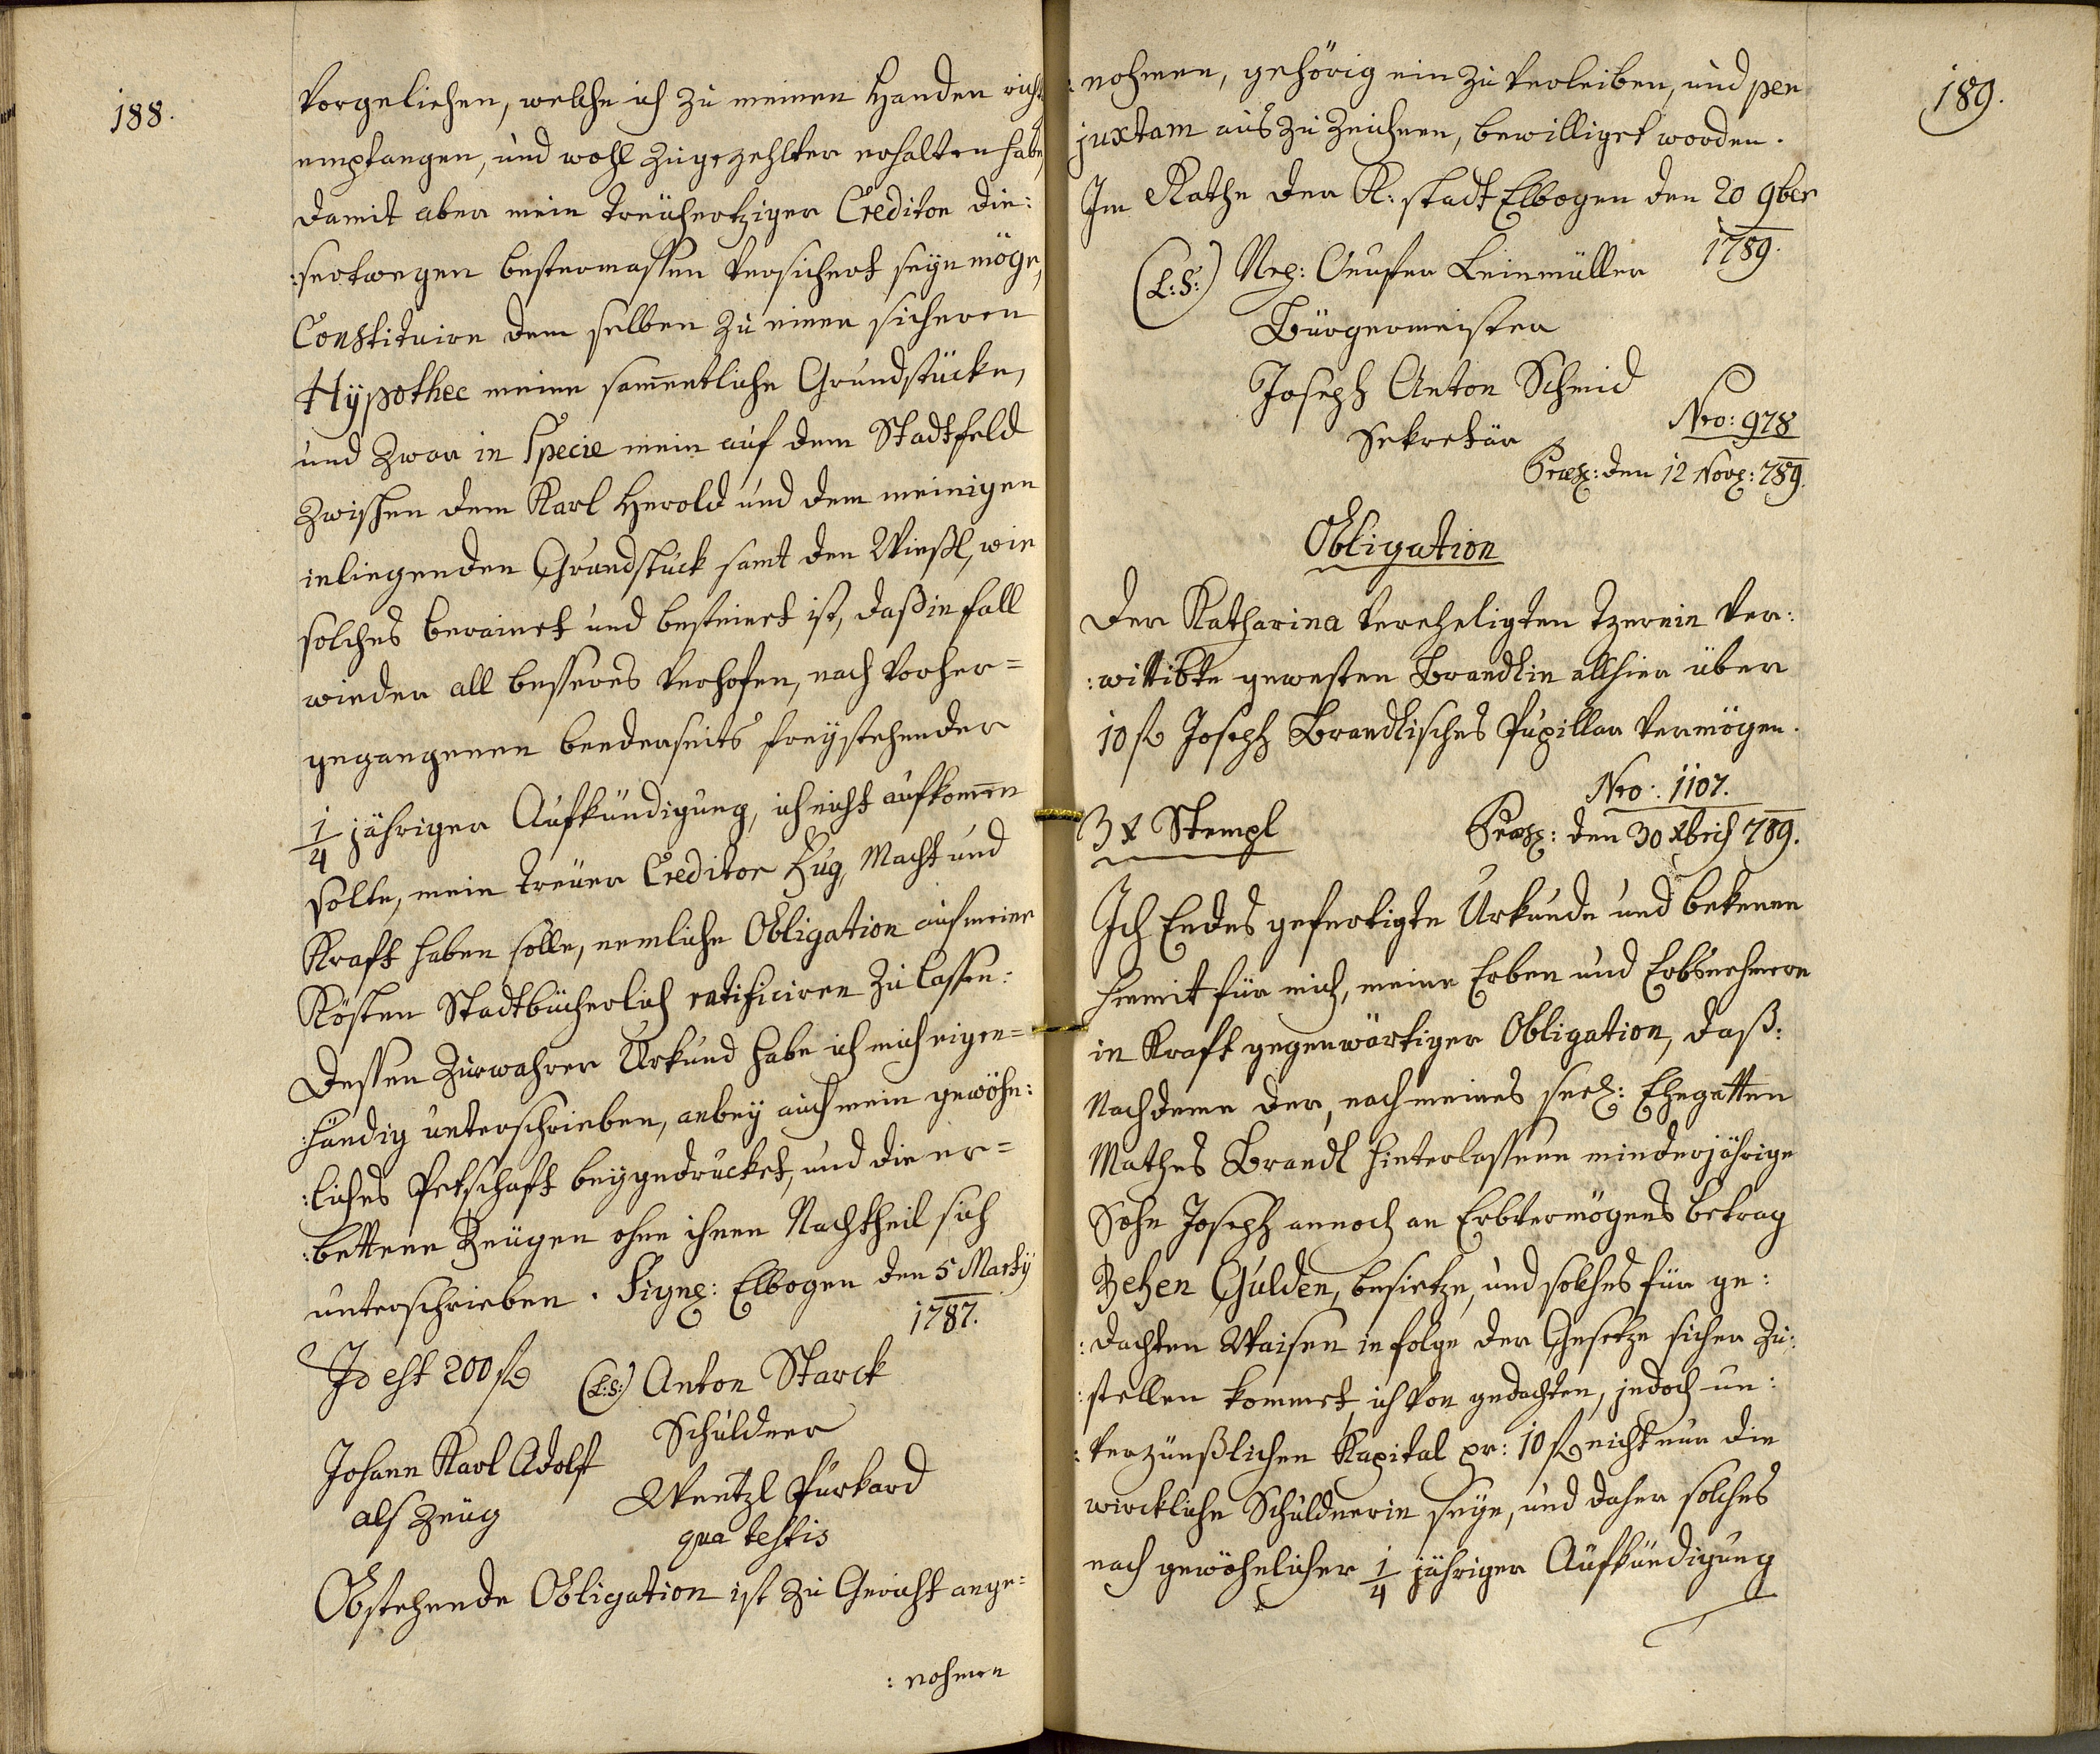 188.
vorgeliehen, welche ich zu meinen Handen richt
empfangen, und wohl zugezehlter erhalten habe,
damit aber mein treühertziger Creditor die:
:sertwegen bestermassen versichert seyn möge,
Constituire dem selben zu einer sicheren
Hÿpothec meine sam̄entliche Grundstücke,
und zwar in Specie mein auf dem Stadtfeld
zwischen dem Karl Herold und dem meinigen
inliegenden Grundstück samt den Wießl, wie
solches berainet und besteinet ist, daß in fall
wieder all besseres verhofen, nach vorher=
gegangenen beederseits freÿstehender
1/4 jähriger Aufkündigung, ich nicht aufkom̄en
solte, mein treüer Creditor Fug, Macht und
Kraft haben solle, nemliche Obligation auf meine
Kösten Stadtbücherlich ratificiren zu lassen:
Dessen zur wahrer Urkund habe ich mich eigen=
:händig unterschrieben, anbeÿ auch mein gewöhn:
:liches Petschaft beÿgedrucket, und die er=
:bettene Zeügen ohne ihnen Nachtheil sich
unterschrieben. Signꝭ: Elbogen den 5 Martÿ
1787.
Id est 200 fl (L:S:) Anton Starck
Schuldner
Johann Karl Adolft
als Zeüg
Wentzl Purkard
qua testis
Obstehende Obligation ist zu Gericht ange:
:nohmen
189.
nohmen, gehörig ein zu verleiben, und per
juxtam aus zu zeichnen, bewilliget worden.
Im Rathe der K: stadt Elbogen den 20 9ber
1789.
(L:S:) Leinmüller
Bürgermeister
Joseph Anton Schmid
Sekretär
Nro: 978
Præsꝭ: den 12 Novꝭ: 789.
Obligation
Der Katharina vereheligten Tzerein ver:
:wittibte gewesten Brandlin allhier über
10 fl Joseph Brandlisches Pupillar Vermögen.
Nro: 1107.
3 x Stempl
Præsꝭ: den 30 Xbris 789.
Ich Endes gefertigte Urkunde und bekenne
hiemit für mich, meine Erben und Erbsnehmere
in Kraft gegenwärtiger Obligation, daß:
Nachdeme der, nach meines seelꝭ: Ehegatten
Mathes Brandl hinterlassene minderjährige
Sohn Joseph annoch an Erbvermögens betrag
Zehen Gulden, besietze, und solches für ge:
:dachten Waisen in folge der Gesetze sicher zu:
:stellen kommet, ich von gedachten, jedoch un:
:verzünßlichen Kapital pr: 10 fl nicht nur die
wirckliche Schuldnerin seÿe, und daher solches
nach gewöhnlicher 1/4 jähriger Aufkündigung